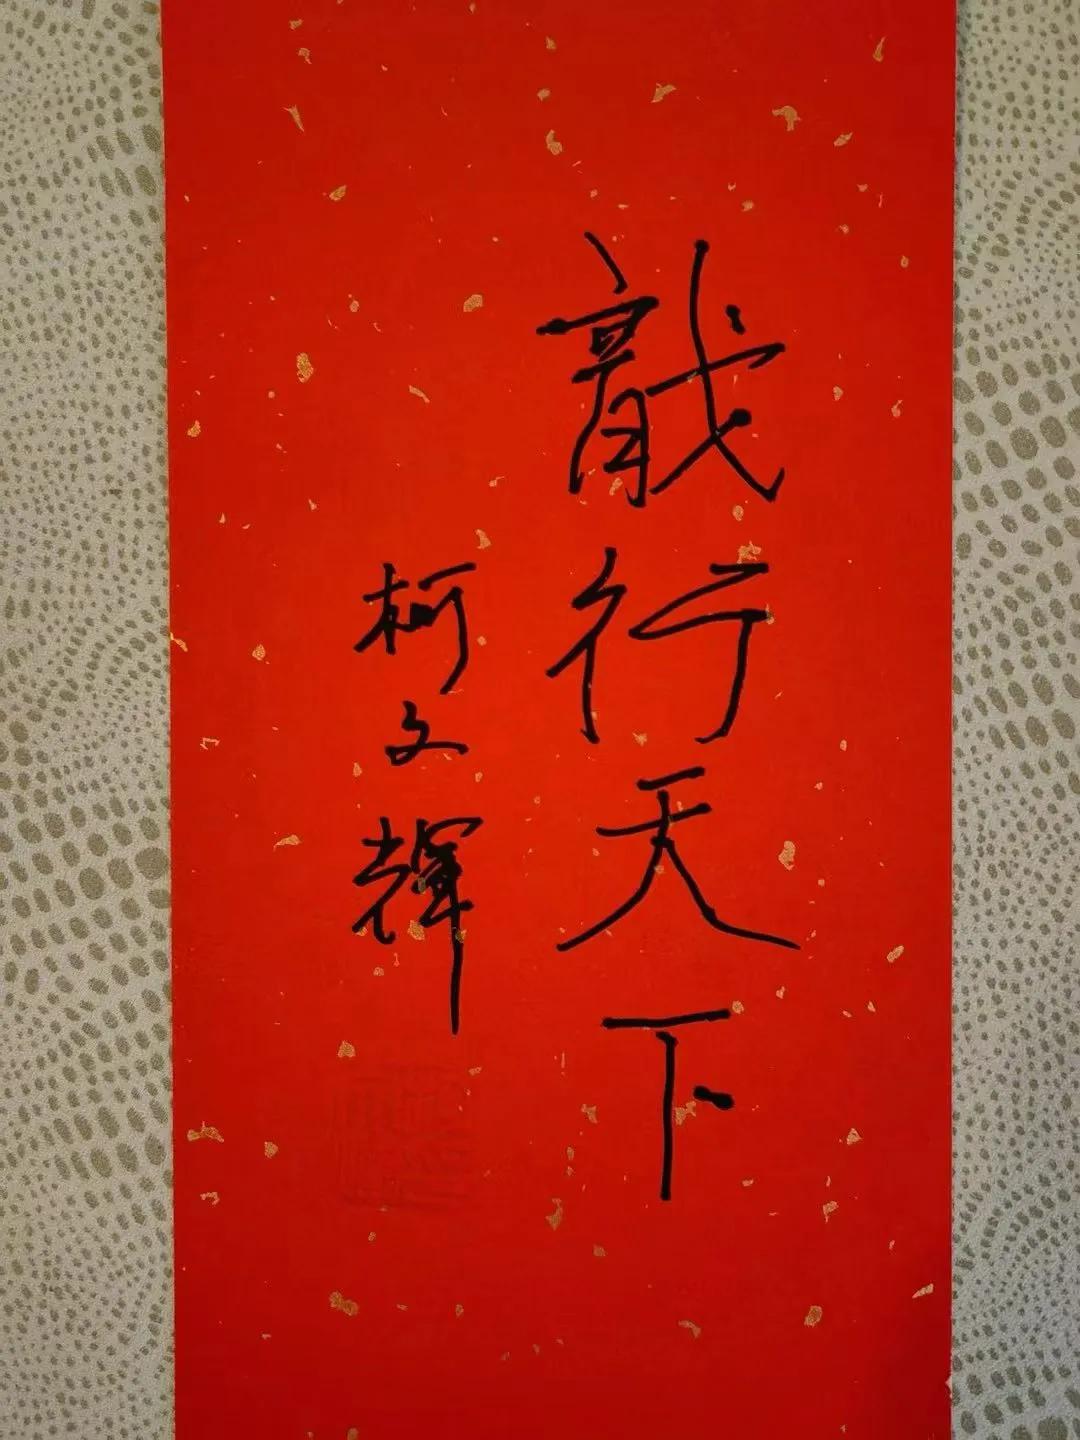 龍行天下
柯文輝